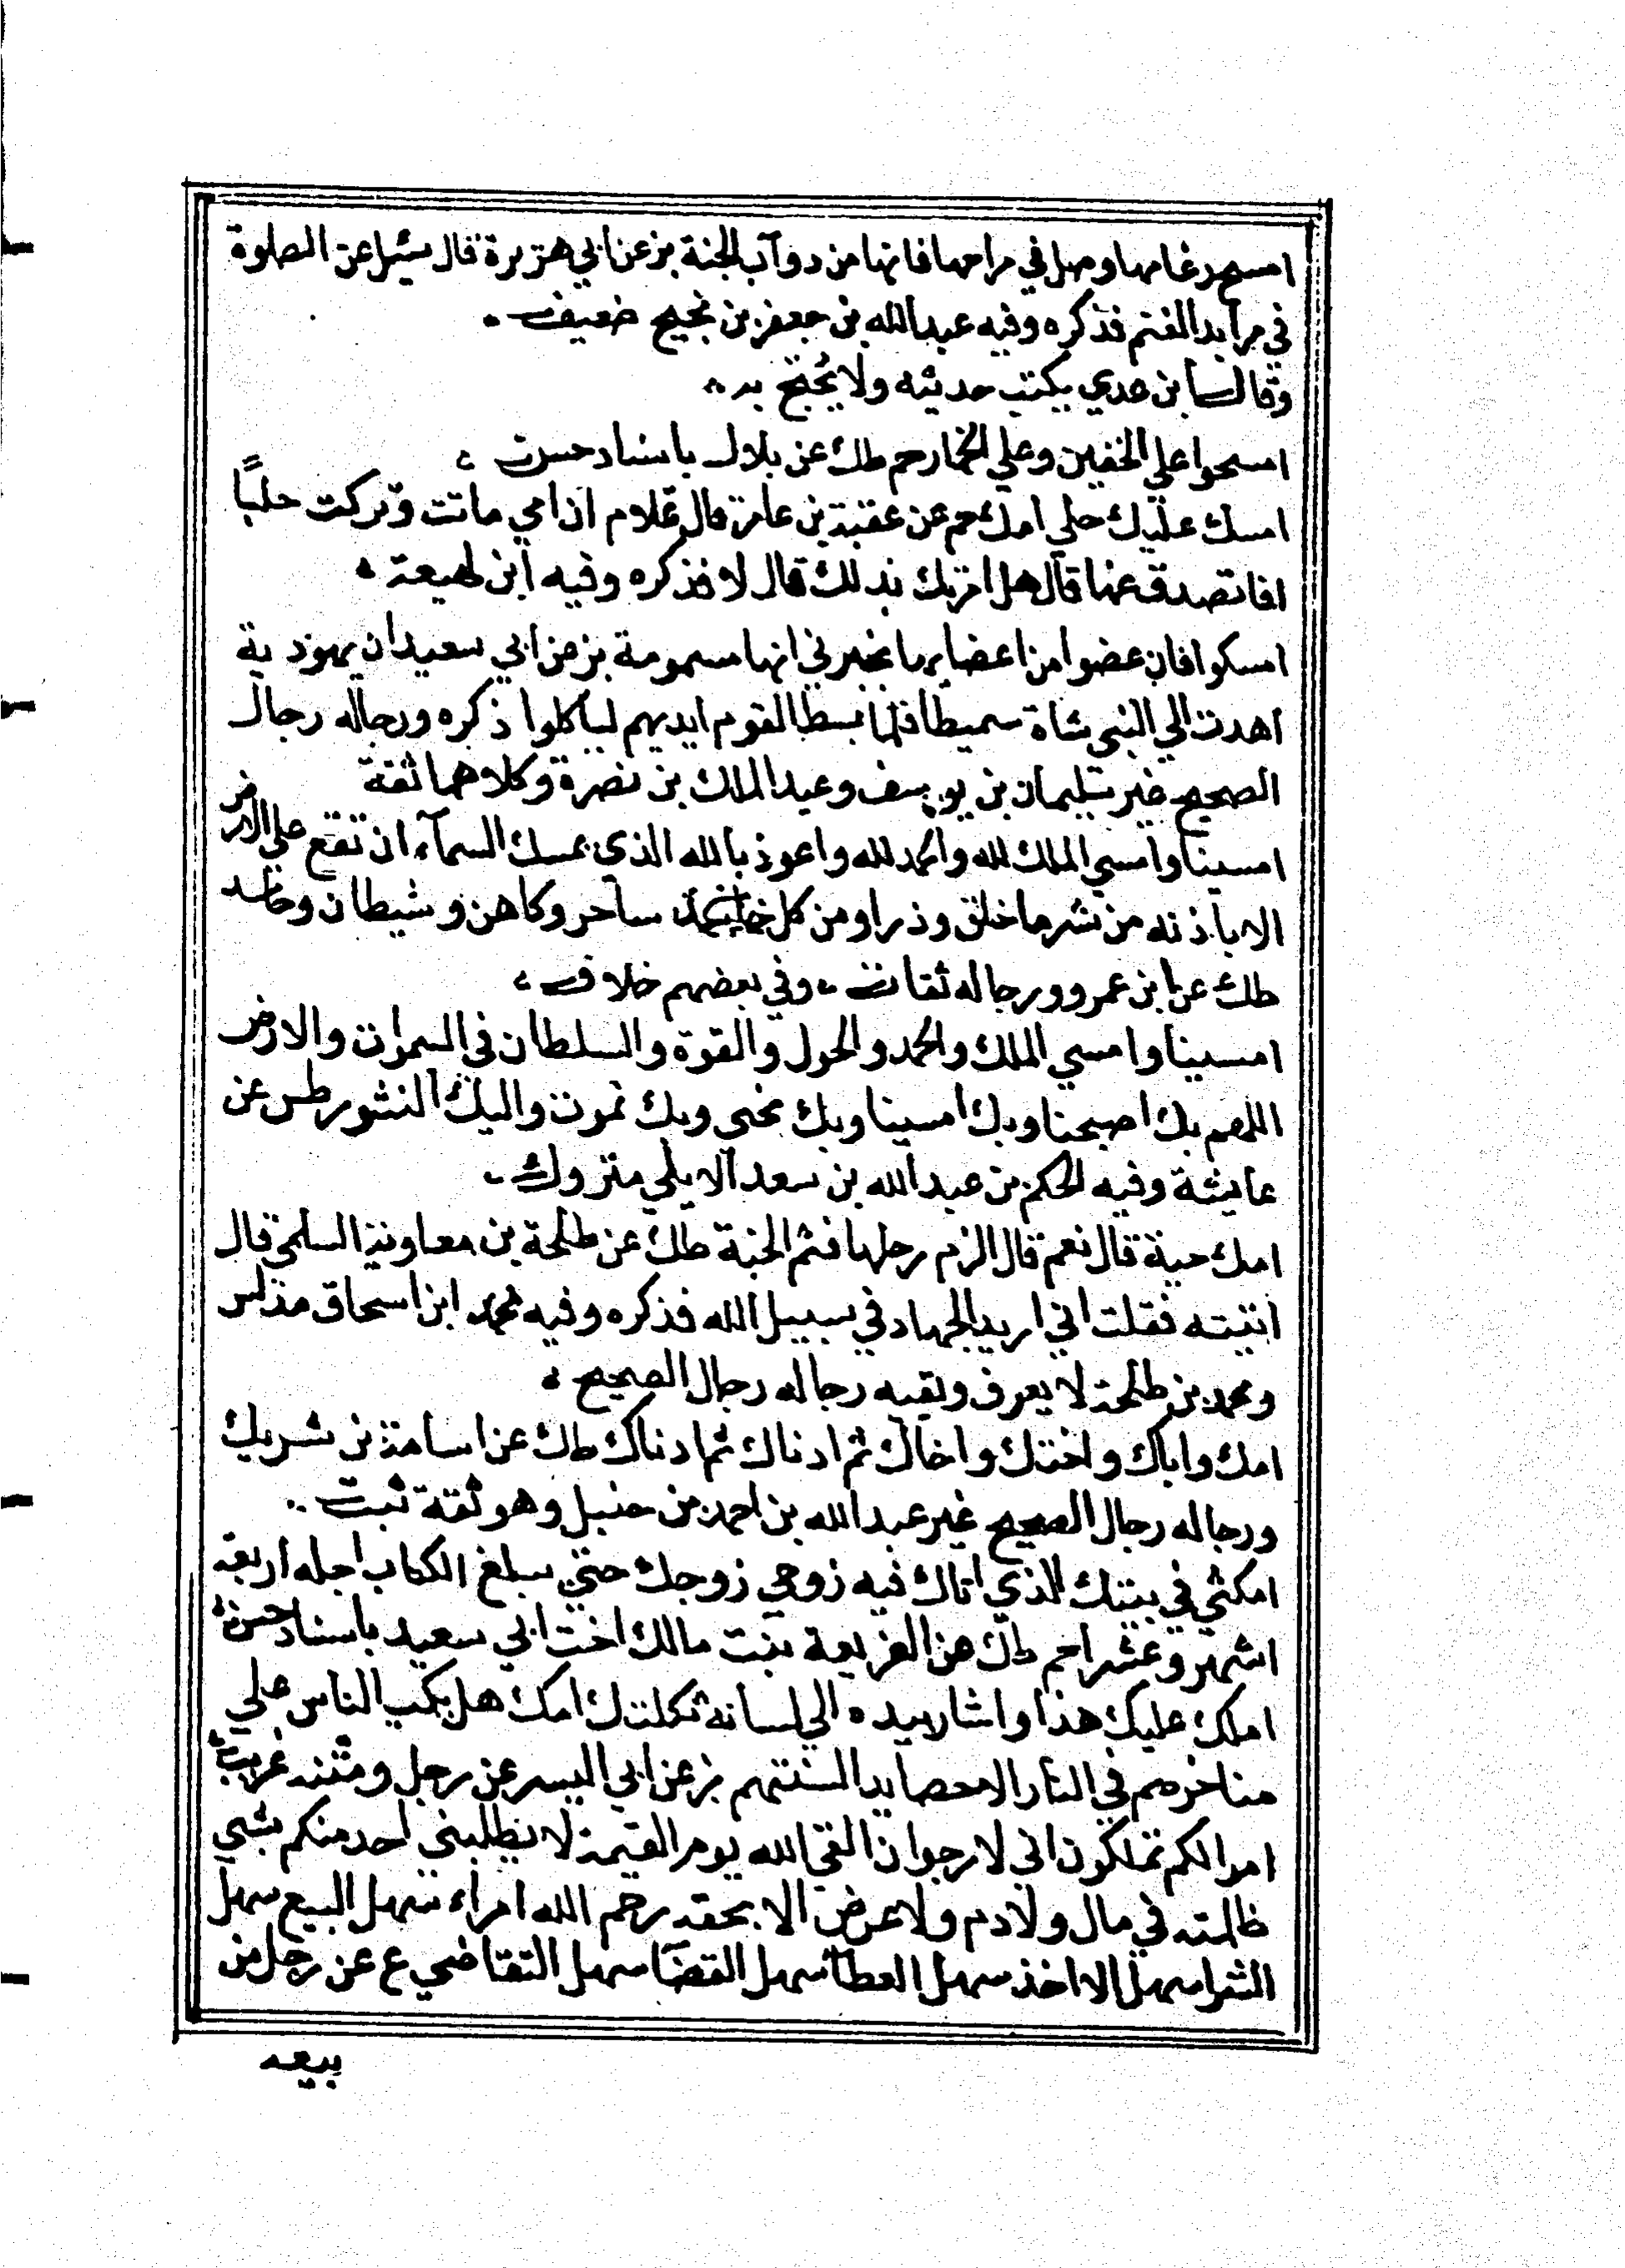 امسح رغامها وصل في مراحها فانها من دوآب الجنة بز عن ابي هريرة قال سئيل عن الصلوة
في مرآبد الغنم فذكره وفيه عبدالله بن جعفر بن نجيح ضعيف
وقال ابن عدي يكتب حديثه ولا يحتج به
امسحوا علي الخفين وعلي الخمار حم طك عن بلال باسناد حسن
امسك عليك حلي امك حم عن عقبة بن عامر قال غلام ان امي ماتت وتركت حليًا
افاتصدق عنها قال هل امرتك بذلك قال لا فذكره وفيه ابن لهيعة
امسكوا فان عضوا من اعضايها يخبرني انها مسمومة بز عن ابي سعيد ان يهودية
اهدت الي النبي شاة سميطا فلما بسط القوم ايديهم لياكلوا ذكره ورجاله رجال
الصحيح غير سليمان بن يوسف وعبد الملك بن نضرة وكلاهما ثقة
امسينا وامسي الملك لله والحمد لله واعوذ بالله الذي يمسك السمآء ان تقع علي الارض
الا باذنه من شر ما خلق وذرا ومن كل ساحر وكاهن وشيطان وحاسد
طك عن ابن عمرو ورجاله ثقات وفي بعضهم خلاف
امسينا وامسي الملك والحمد والحول والقوة والسلطان في السموات والارض
اللهم بك اصبحنا وبك امسينا وبك نحيي وبك نموت واليك النشور طس عن
عايشة وفيه الحكم بن عبد الله بن سعد الايلي متروك
امك حية قال نعم قال الزم رجلها فثم الجنة طك عن طلحة بن معاوية السلمي قال
اتيته فقلت اني اريد الجهاد في سبيل الله فذكره وفيه محمد ابن اسحاق مدلس
ومحمد بن طلحة لا يعرف وبقيه رجاله رجال الصحيح
امك واباك واختك واخاك ثم ادناك ثم ادناك طك عن اسامة بن شريك
ورجاله رجال الصحيح غير عبد الله بن احمد بن حنبل وهو ثقة ثبت
امكثي في بيتك الذي اتاك فيه زوجي زوجك حتي يبلغ الكتاب اجله اربعة
اشهر وعشرا حم طك عن الفريعة بنت مالك اخت ابي سعيد باسناد حسن
املك عليك هذا واشار بيده الي لسانه ثكلتك امك هل يكب الناس علي
مناخرهم في النار الا حصايد السنتهم بز عن ابي اليسر عن رجل ومتنه غريب
اموالكم تملكون اني لارجوا ان القي الله يوم القيمة لا يطلبني احد منكم بشي
ظلمته في مال ولا دم ولا عرض الا بحقه رحم الله امراء سهل البيع سهل
الشرا سهل الاخذ سهل العطا سهل القضا سهل التقاضي ع عن رجل من
بيعه